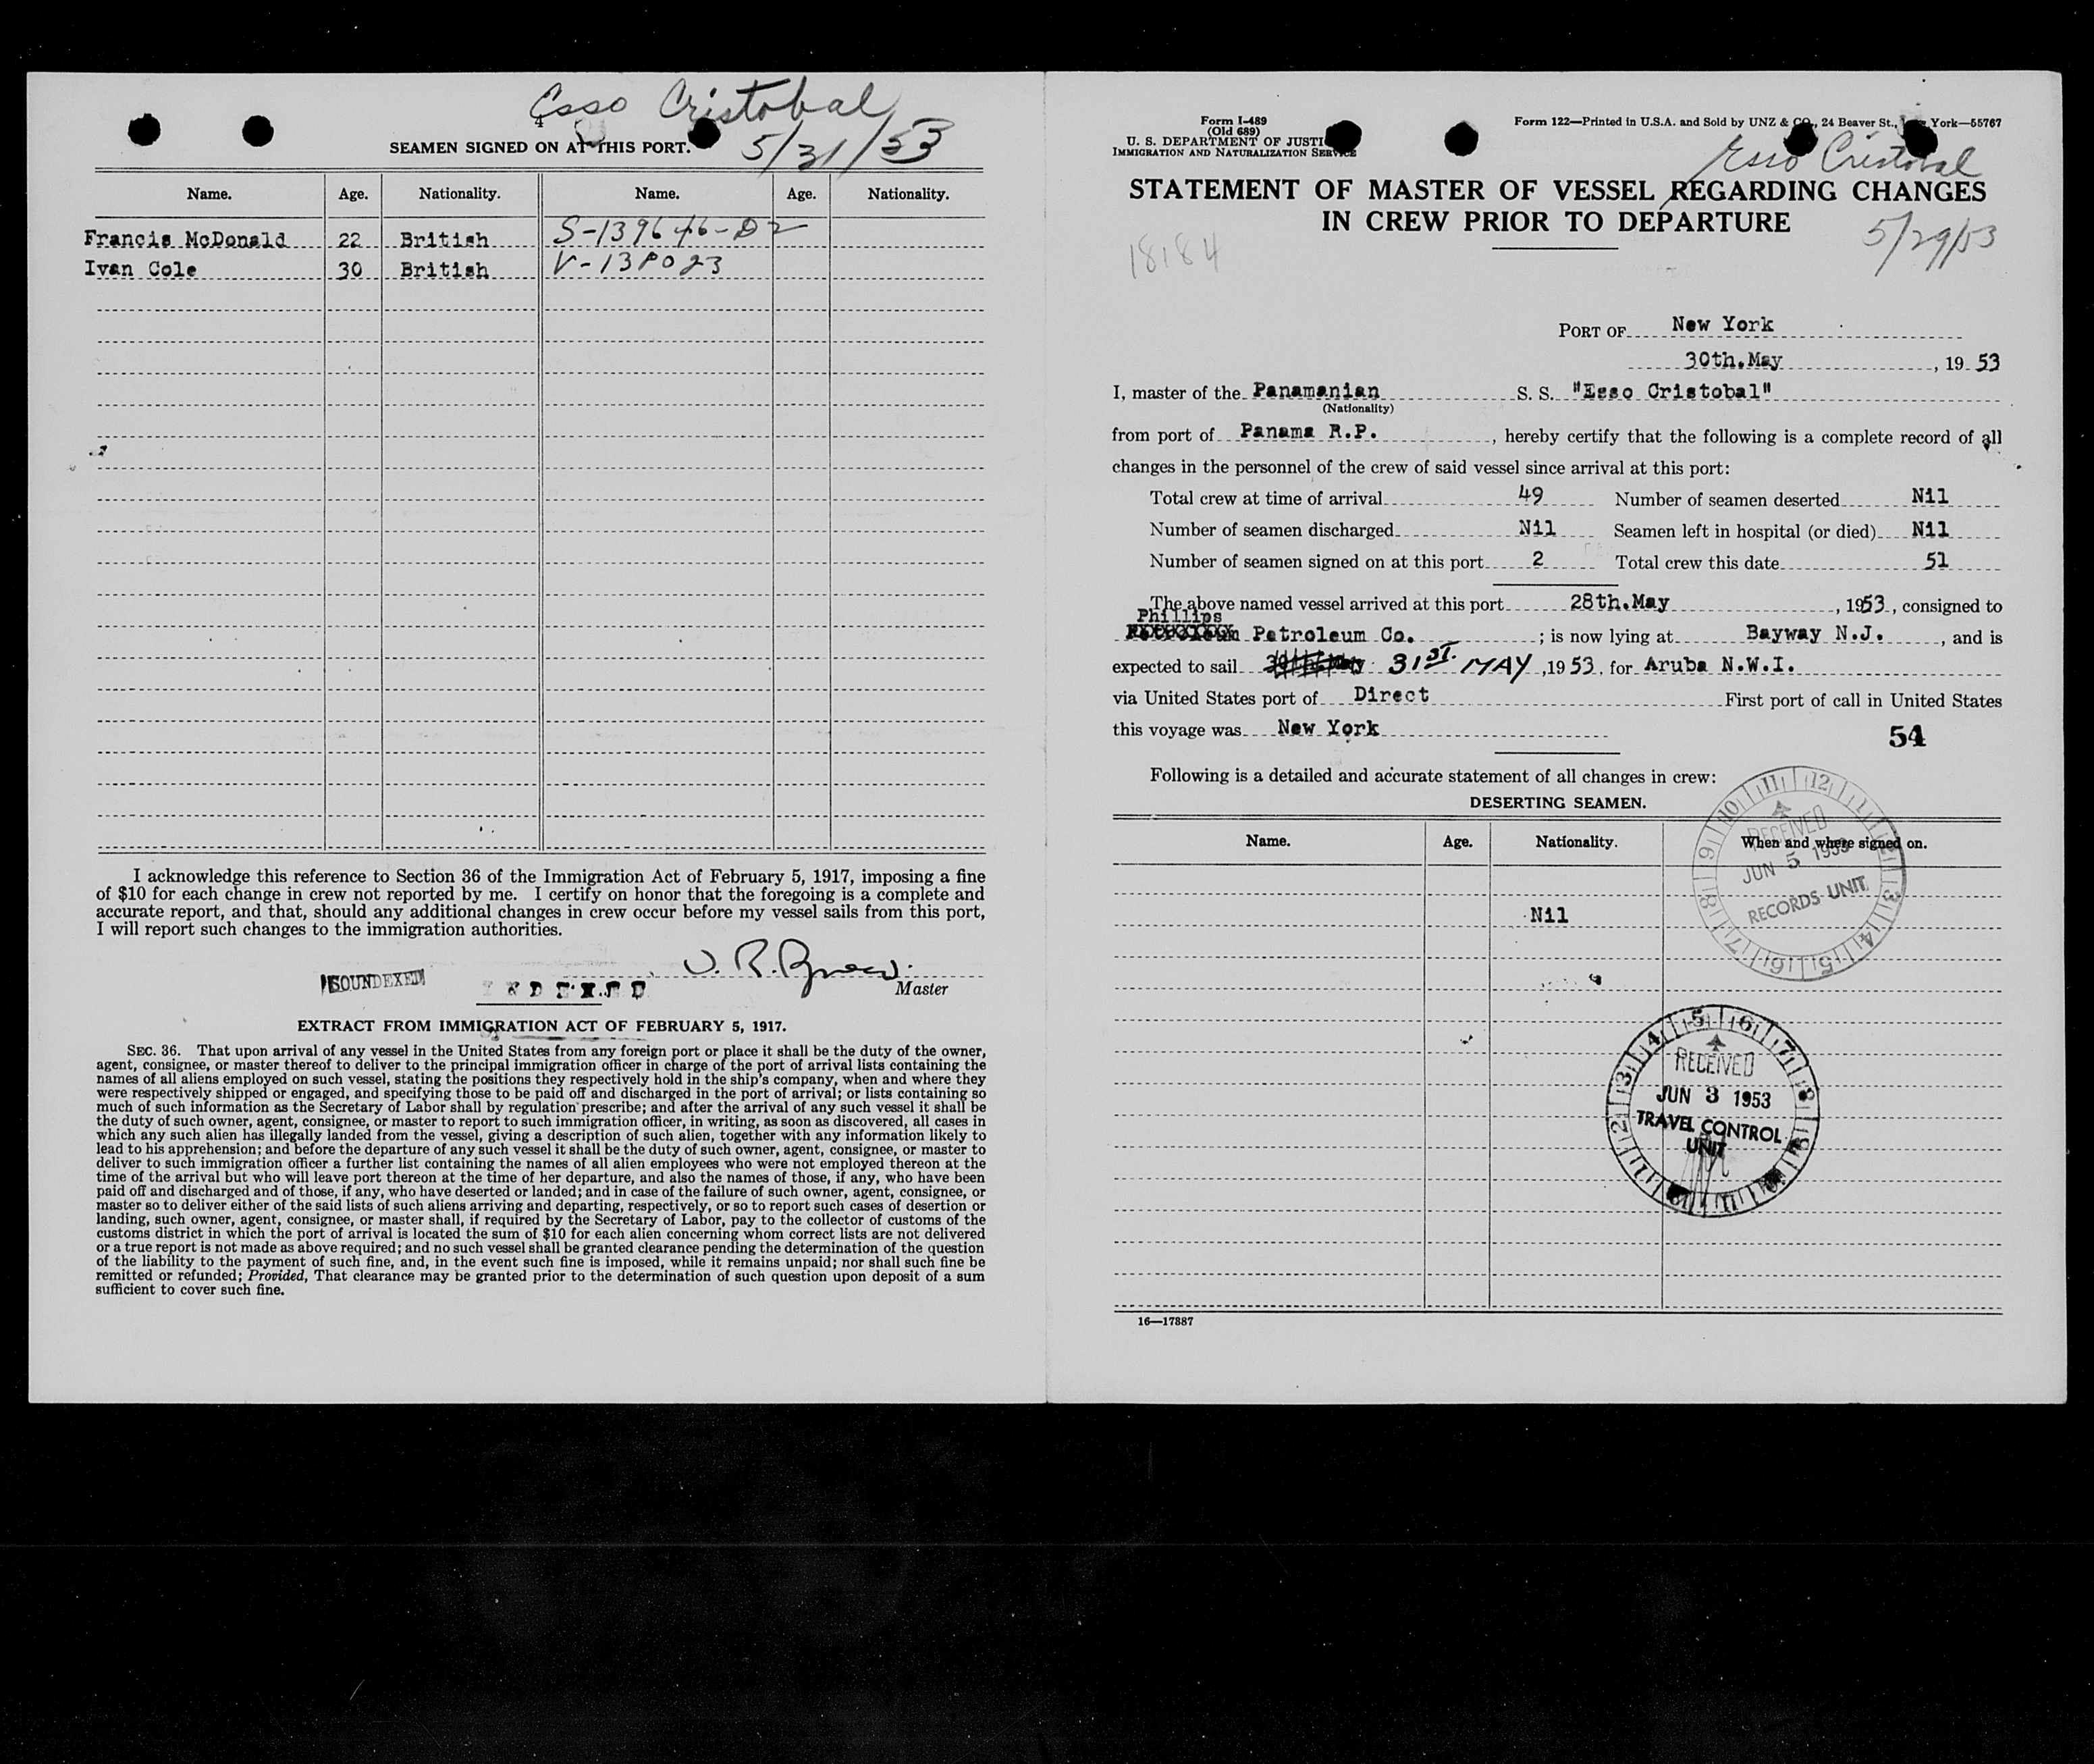 Esso Cristobal
4
SEAMEN SIGNED ON AT THIS PORT. 5/31/53
Name. Age. Nationality. Name. Age. Nationality.
Francis McDonald 22 British S-139646-D2
Ivan Cole 30 British V-138023
I acknowledge this reference to Section 36 of the Immigration Act of February 5, 1917, imposing a fine
of $10 for each change in crew not reported by me. I certify on honor that the foregoing is a complete and
accurate report, and that, should any additional changes in crew occur before my vessel sails from this port,
I will report such changes to the immigration authorities.
SOUNDEXED
INDEXED
Master
EXTRACT FROM IMMIGRATION ACT OF FEBRUARY 5, 1917.
SEC. 36. That upon arrival of any vessel in the United States from any foreign port or place it shall be the duty of the owner,
agent, consignee, or master thereof to deliver to the principal immigration officer in charge of the port of arrival lists containing the
names of all aliens employed on such vessel, stating the positions they respectively hold in the ship's company, when and where they
were respectively shipped or engaged, and specifying those to be paid off and discharged in the port of arrival; or lists containing so
much of such information as the Secretary of Labor shall by regulation prescribe; and after the arrival of any such vessel it shall be
the duty of such owner, agent, consignee, or master to report to such immigration officer, in writing, as soon as discovered, all cases in
which any such alien has illegally landed from the vessel, giving a description of such alien, together with any information likely to
lead to his apprehension; and before the departure of any such vessel it shall be the duty of such owner, agent, consignee, or master to
deliver to such immigration officer a further list containing the names of all alien employees who were not employed thereon at the
time of the arrival but who will leave port thereon at the time of her departure, and also the names of those, if any, who have been
paid off and discharged and of those, if any, who have deserted or landed; and in case of the failure of such owner, agent, consignee, or
master so to deliver either of the said lists of such aliens arriving and departing, respectively, or so to report such cases of desertion or
landing, such owner, agent, consignee, or master shall, if required by the Secretary of Labor, pay to the collector of customs of the
customs district in which the port of arrival is located the sum of $10 for each alien concerning whom correct lists are not delivered
or a true report is not made as above required; and no such vessel shall be granted clearance pending the determination of the question
of the liability to the payment of such fine, and, in the event such fine is imposed, while it remains unpaid; nor shall such fine be
remitted or refunded; Provided, That clearance may be granted prior to the determination of such question upon deposit of a sum
sufficient to cover such fine.
Form I-489
(Old 689)
U. S. DEPARTMENT OF JUSTICE
IMMIGRATION AND NATURALIZATION SERVICE
Form 122—Printed in U.S.A. and Sold by UNZ & CO., 24 Beaver St., New York—55767
Esso Cristobal
STATEMENT OF MASTER OF VESSEL REGARDING CHANGES
IN CREW PRIOR TO DEPARTURE
18184
5/29/53
PORT OF New York
30th.May, 19 53
I, master of the Panamanian S. S. "Esso Cristobal"
(Nationality)
from port of Panama R.P., hereby certify that the following is a complete record of all
changes in the personnel of the crew of said vessel since arrival at this port:
Total crew at time of arrival 49 Number of seamen deserted Nil
Number of seamen discharged Nil Seamen left in hospital (or died) Nil
Number of seamen signed on at this port 2 Total crew this date 51
The above named vessel arrived at this port 28th.May, 1953, consigned to
Phillips
Petroleum Co.; is now lying at Bayway N.J., and is
expected to sail 31ST. MAY, 1953, for Aruba N.W.I.
via United States port of Direct First port of call in United States
this voyage was New York
54
Following is a detailed and accurate statement of all changes in crew:
DESERTING SEAMEN.
Name. Age. Nationality. When and where signed on.
Nil
RECEIVED
JUN 5 1953
RECORDS UNIT
RECEIVED
JUN 3 1953
TRAVEL CONTROL
UNIT
16—17887